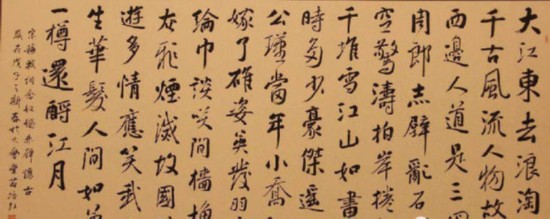 大江東去浪淘
千古風流人物故
西邊人道是三
周郎赤壁亂石
空驚濤拍岸捲
千堆雪江山如畫
時多少豪傑遥
公瑾當年小喬
嫁了雄姿英發羽
綸巾談笑間檣
灰飛煙滅故國
遊多情應笑我
生華髮人間如
一樽還酹江月
宋蘇軾詞念奴嬌赤壁懷古
歲在戊子之